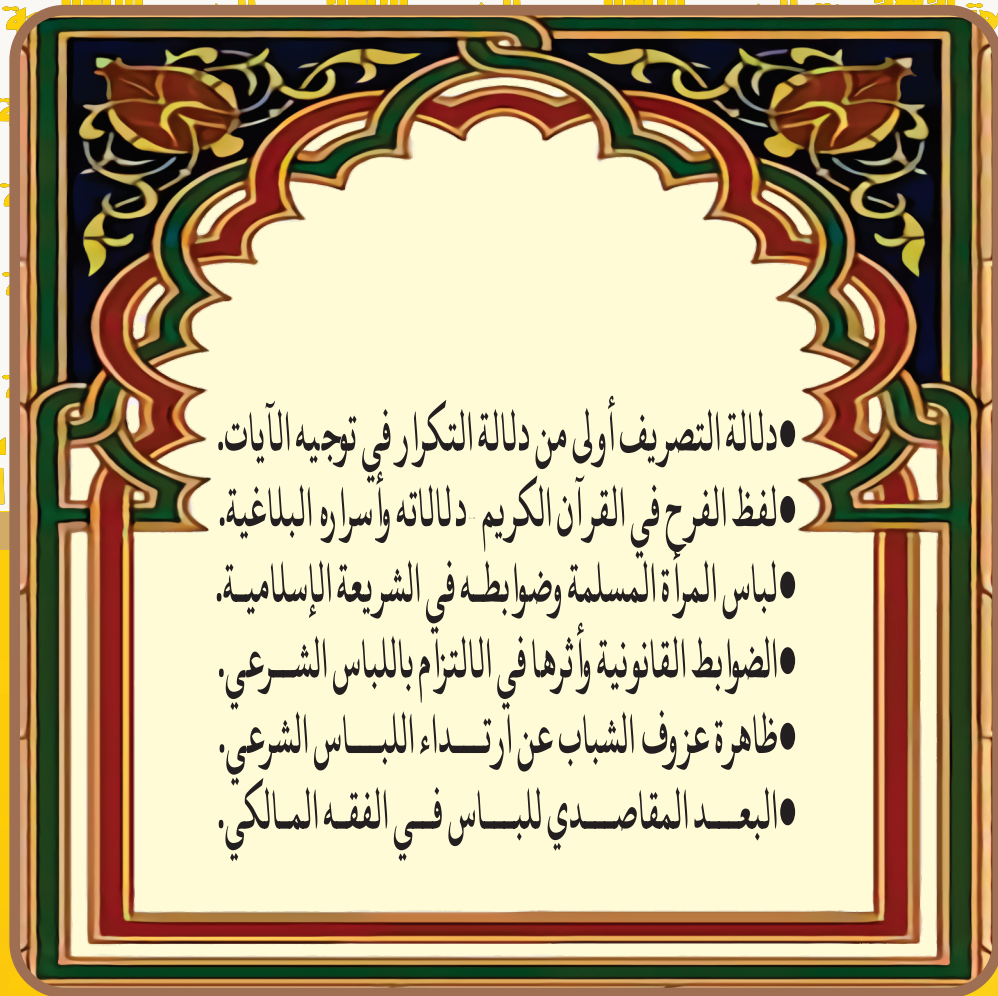 ●دلالة التصريف أولى من دلالة التكرار في توجيه الآيات.
●لفظ الفرح في القرآن الكريم دلالاته وأسراره البلاغية.
●لباس المرأة المسلمة وضوابطـه في الشريعة الإسلاميـة.
●الضوابط القانونية وأثرها في الالتزام باللباس الشـــرعي.
●ظاهرة عزوف الشباب عن ارتــــداء اللبــــاس الشرعي.
●البعــــد المقاصــــدي للبــــاس فــــي الفقـه المـالكي.